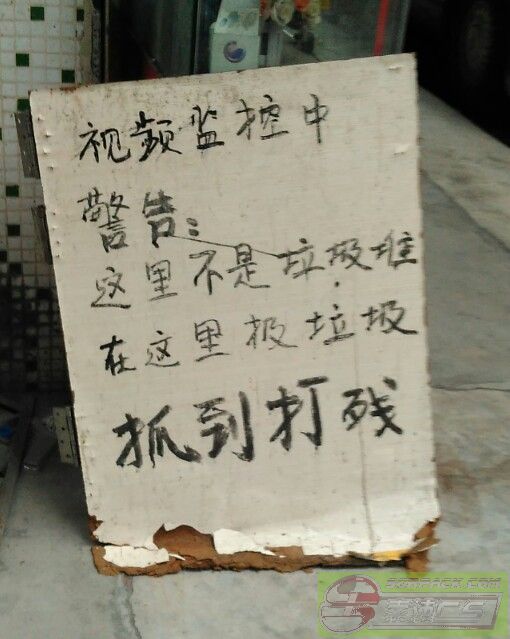 视频监控中
警告：
这里不是垃圾堆
在这里扱垃圾
抓到打残